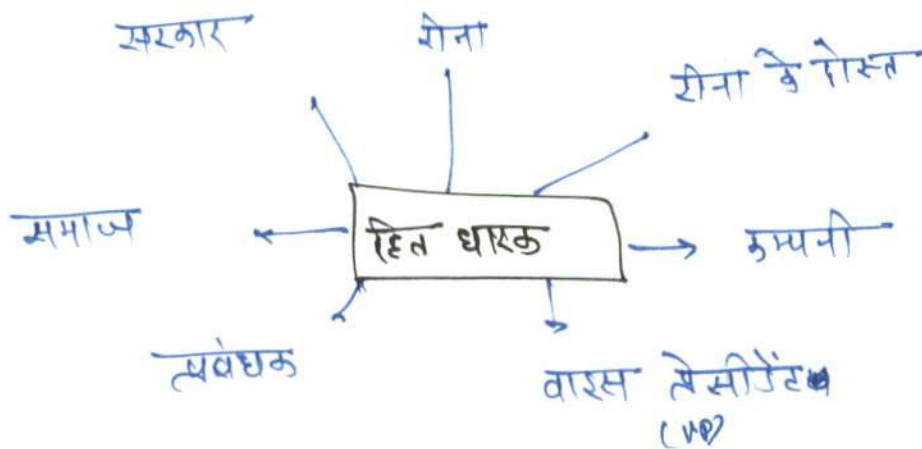 सरकार
रीना
रीना के दोस्त
समाज
हित धारक
कम्पनी
प्रबंधक
वाइस प्रेसीडेंट
(VP)